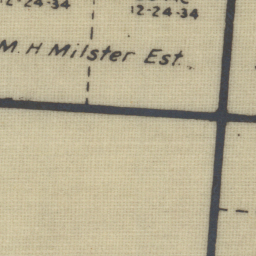 12-24-34
12-24-34
M. H Milster Est.